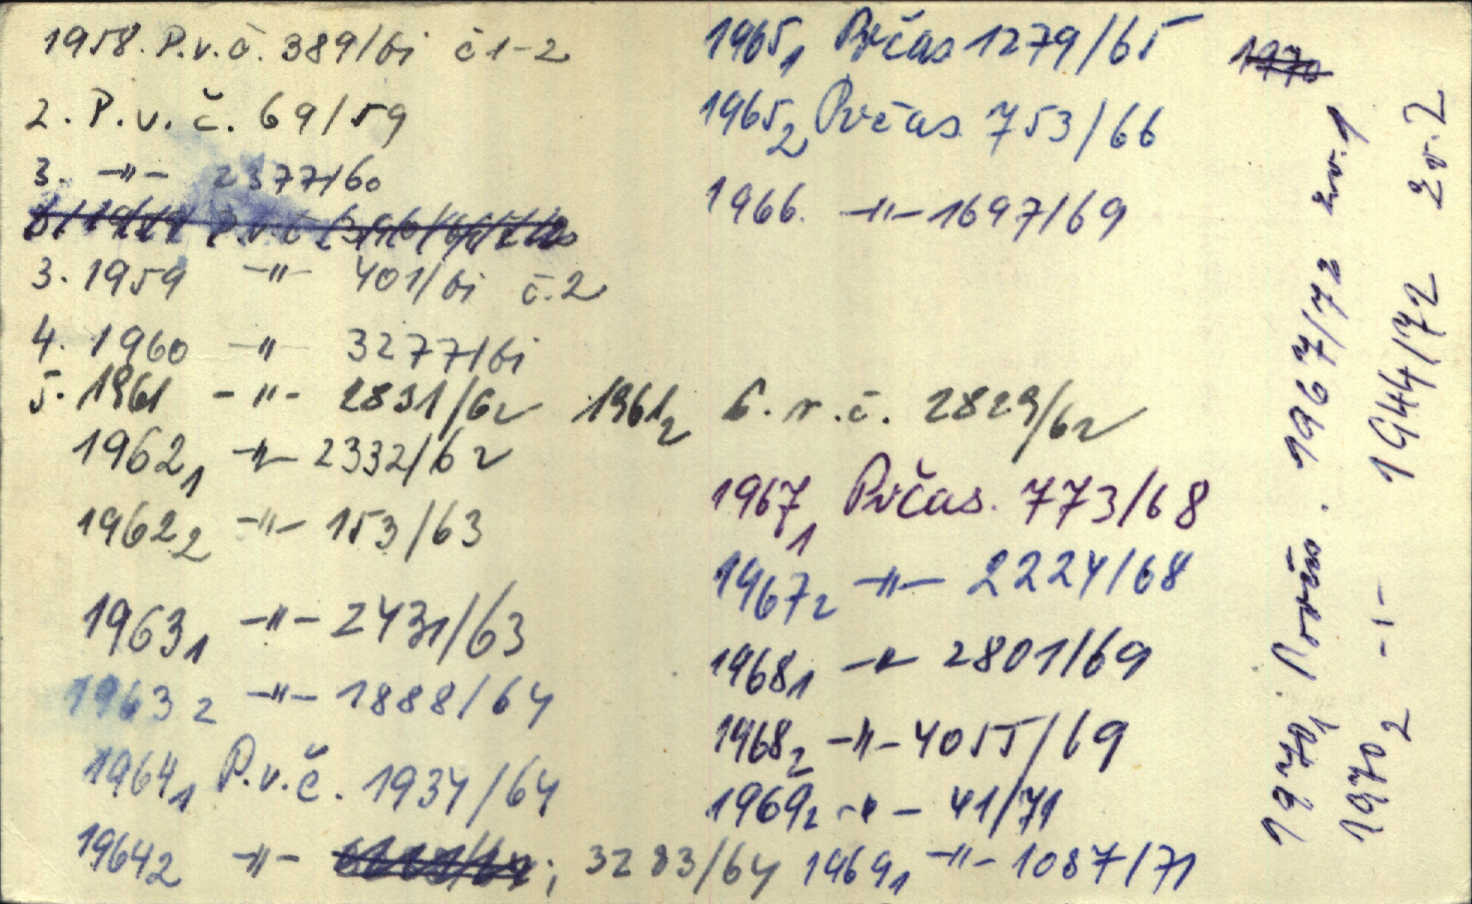 1958. P.v.č. 389/61 č 1-2
2. P.v.č. 69/59
3. -"- 2377/60
3. 1959 -"- 401/61 č.2
4. 1960 -"- 3277/61
5. 1961 -"- 2831/62 1961₂ P.v.č. 2829/62
1962₁ -"- 2332/62
1962₂ -"- 153/63
1963₁ -"- 2431/63
1963₂ -"- 1888/64
1964₁ P.v.č. 1934/64
1964₂ -"- ; 3283/64
1965₁ Pvčas 1279/65
1965₂ Pvčas 753/66
1966. -"- 1697/69
1967₁ Pvčas. 773/68
1967₂ -"- 2224/68
1968₁ -"- 2801/69
1968₂ -"- 4055/69
1969₂ -"- 41/71
1969₁ -"- 1087/71
1970
1970₁ . 1967/72 zv.1
1970₂ -"- 1944/72 zv.2